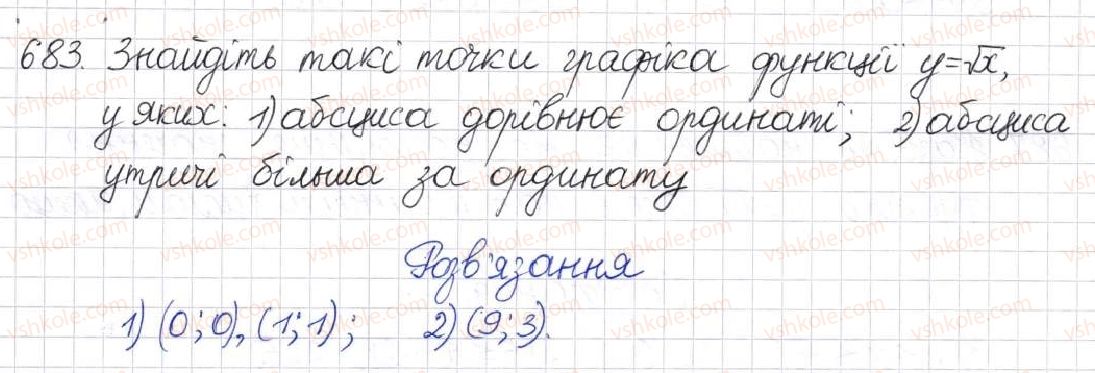 683. Знайдіть такі точки графіка функції y=√x,
у яких: 1) абсциса дорівнює ординаті; 2) абсциса
утричі більша за ординату
Розв'язання
1) (0; 0), (1; 1); 2) (9; 3).